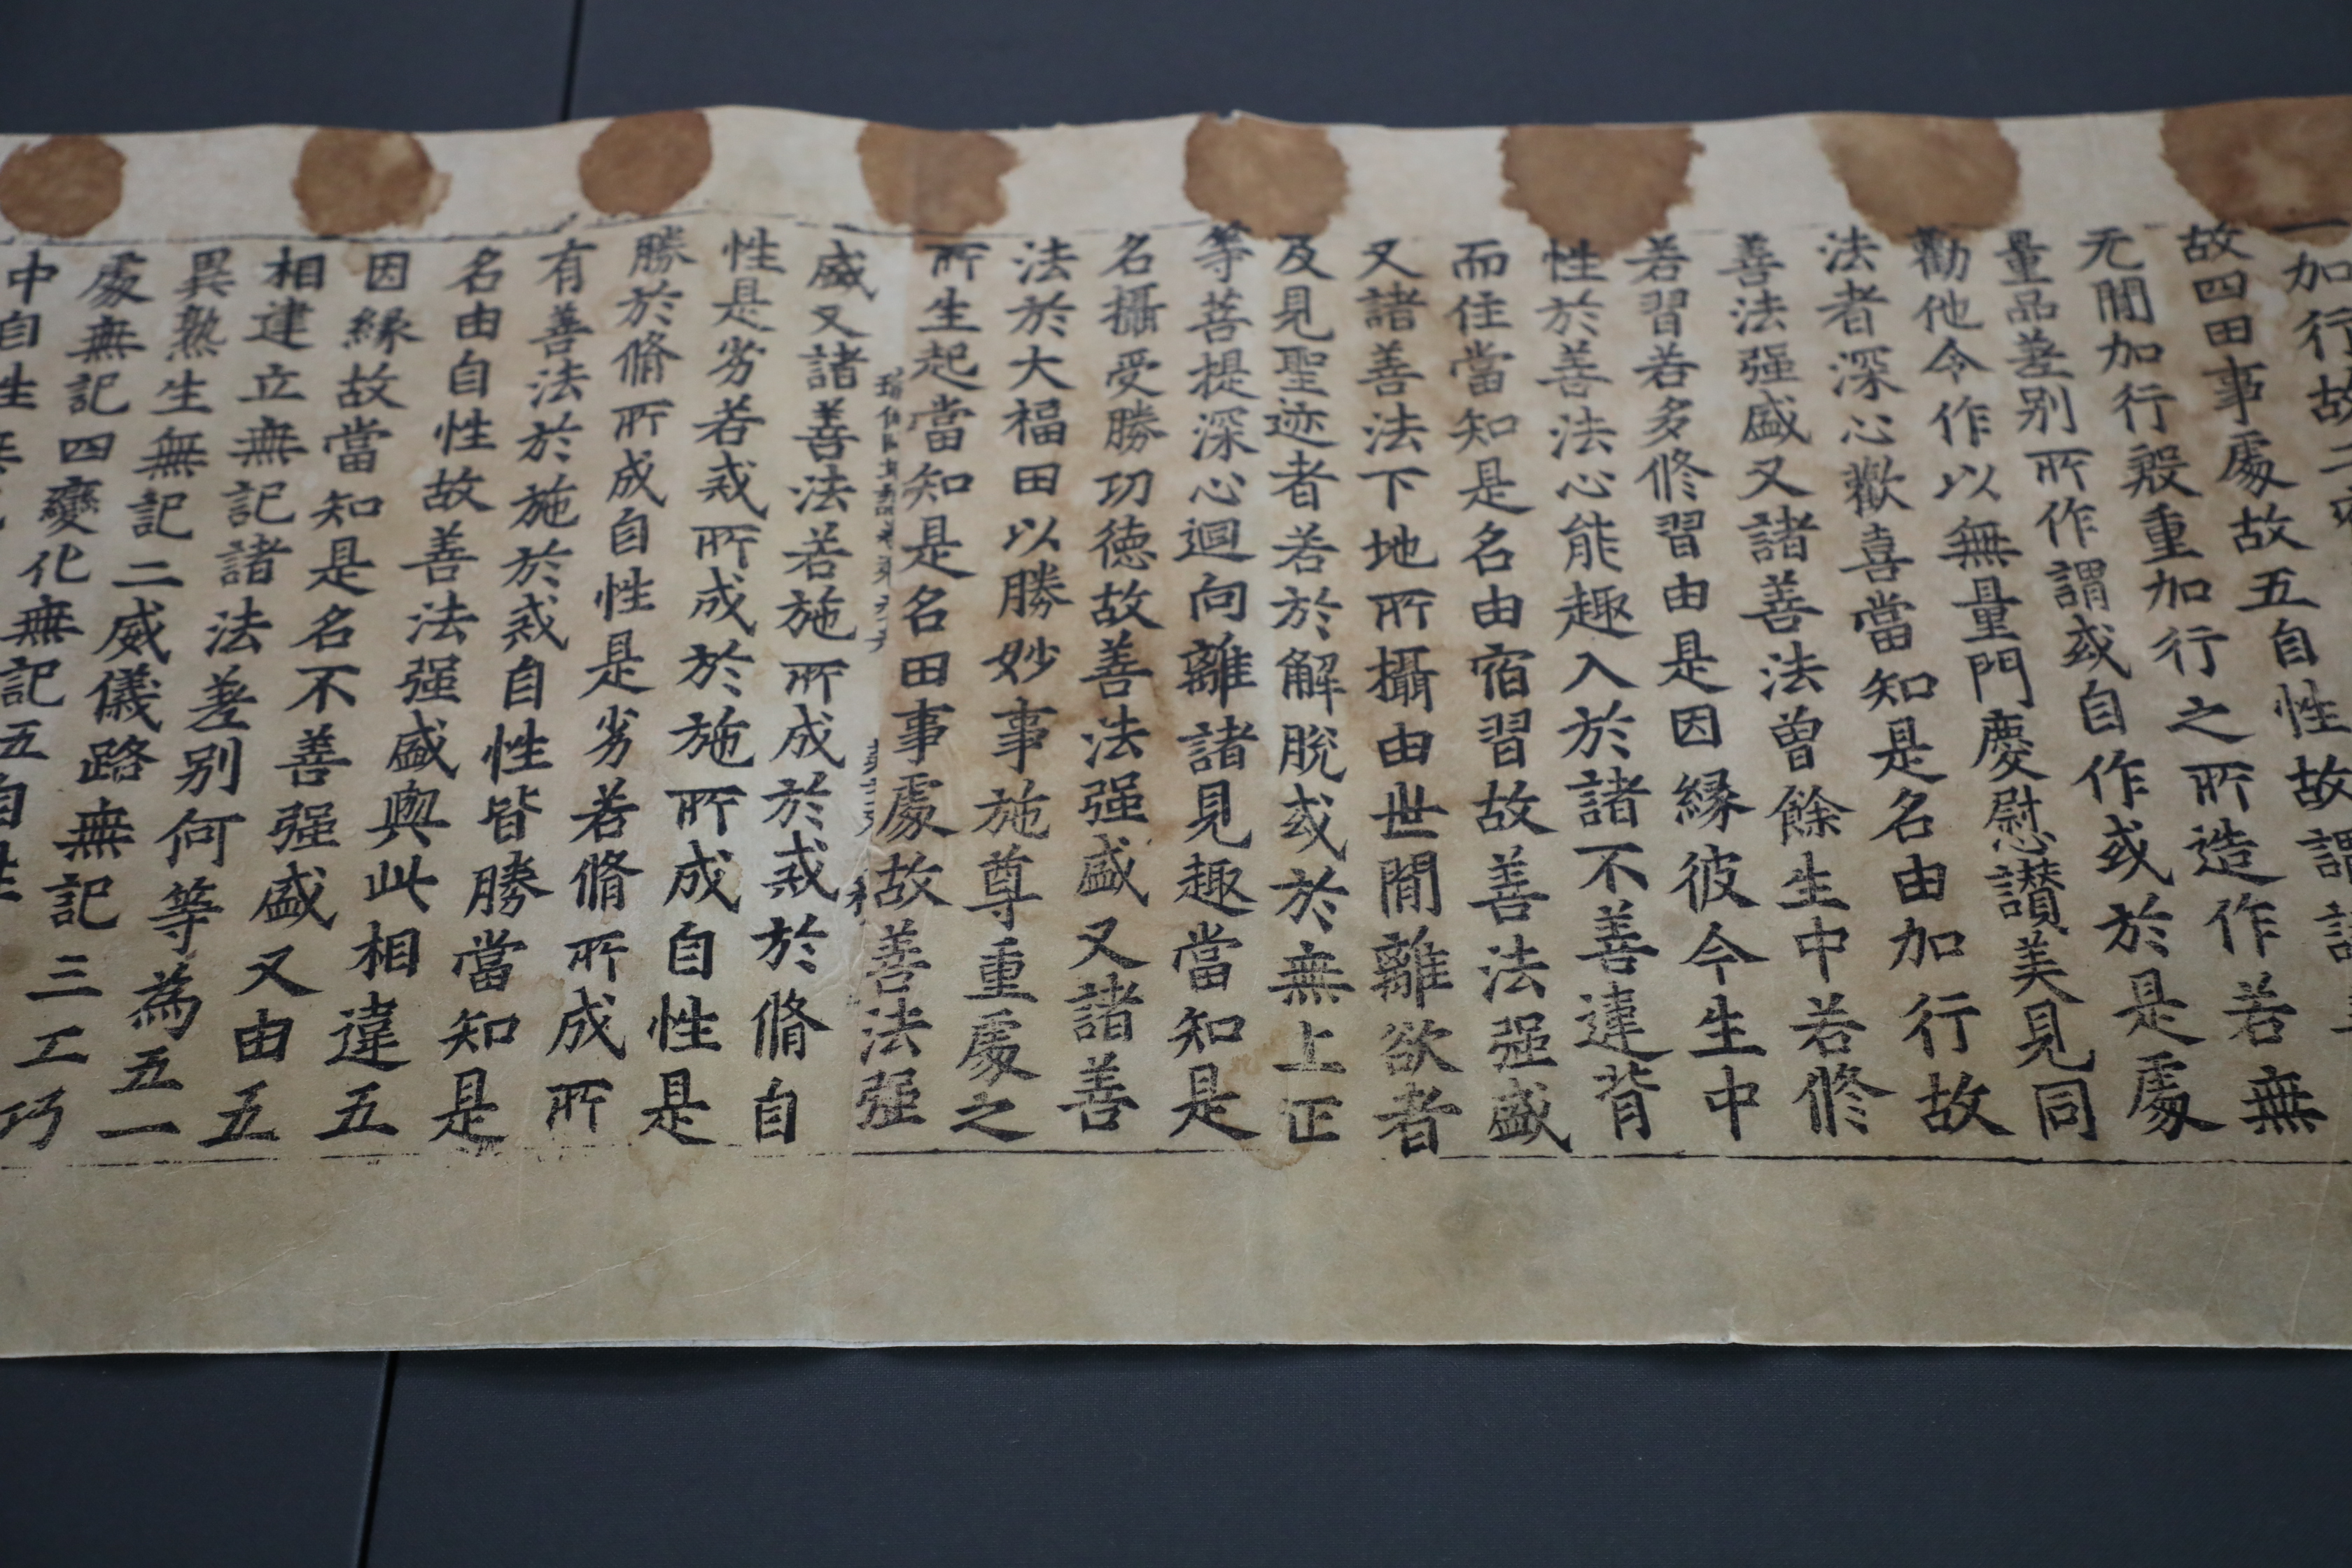 一加行故二
故四田事處故五自性故謂
无間加行殷重加行之所造作若無
量品差别所作謂或自作或於是處
勸他令作以無量門慶慰讃美見同
法者深心歡喜當知是名由加行故
善法强盛又諸善法曾餘生中若修
若習若多修習由是因縁彼今生中
性於善法心能趣入於諸不善違背
而住當知是名由宿習故善法强盛
又諸善法下地所攝由世間離欲者
及見聖迹者若於解脫或於無上正
等菩提深心迴向離諸見趣當知是
名攝受勝功德故善法强盛又諸善
法於大福田以勝妙事施尊重處之
所生起當知是名田事處故善法强
盛又諸善法若施所成於戒於脩自
性是劣若戒所成於施所成自性是
勝於脩所成自性是劣若脩所成所
有善法於施於戒自性皆勝當知是
名由自性故善法强盛與此相違五
因縁故當知是名不善强盛又由五
相建立無記諸法差别何等為五一
異熟生無記二威儀路無記三工巧
處無記四變化無記五自性
中自性